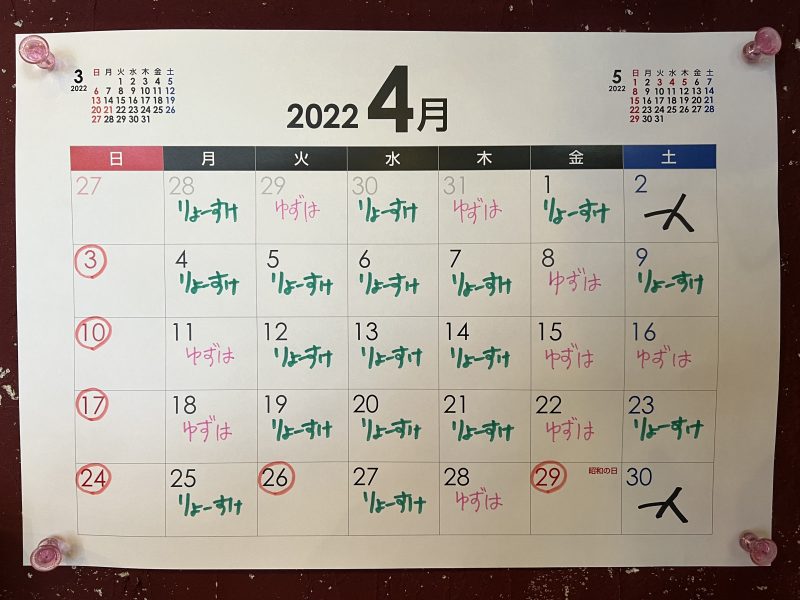 3
2022
日 月 火 水 木 金 土
1 2 3 4 5
6 7 8 9 10 11 12
13 14 15 16 17 18 19
20 21 22 23 24 25 26
27 28 29 30 31
2022 4月
5
2022
日 月 火 水 木 金 土
1 2 3 4 5 6 7
8 9 10 11 12 13 14
15 16 17 18 19 20 21
22 23 24 25 26 27 28
29 30 31
日 月 火 水 木 金 土
27 28 29 30 31 1 2
りょーすけ ゆずは りょーすけ ゆずは りょーすけ
3 4 5 6 7 8 9
りょーすけ りょーすけ りょーすけ りょーすけ ゆずは りょーすけ
10 11 12 13 14 15 16
ゆずは りょーすけ りょーすけ りょーすけ ゆずは ゆずは
17 18 19 20 21 22 23
ゆずは りょーすけ りょーすけ りょーすけ ゆずは りょーすけ
24 25 26 27 28 29 昭和の日 30
りょーすけ りょーすけ ゆずは